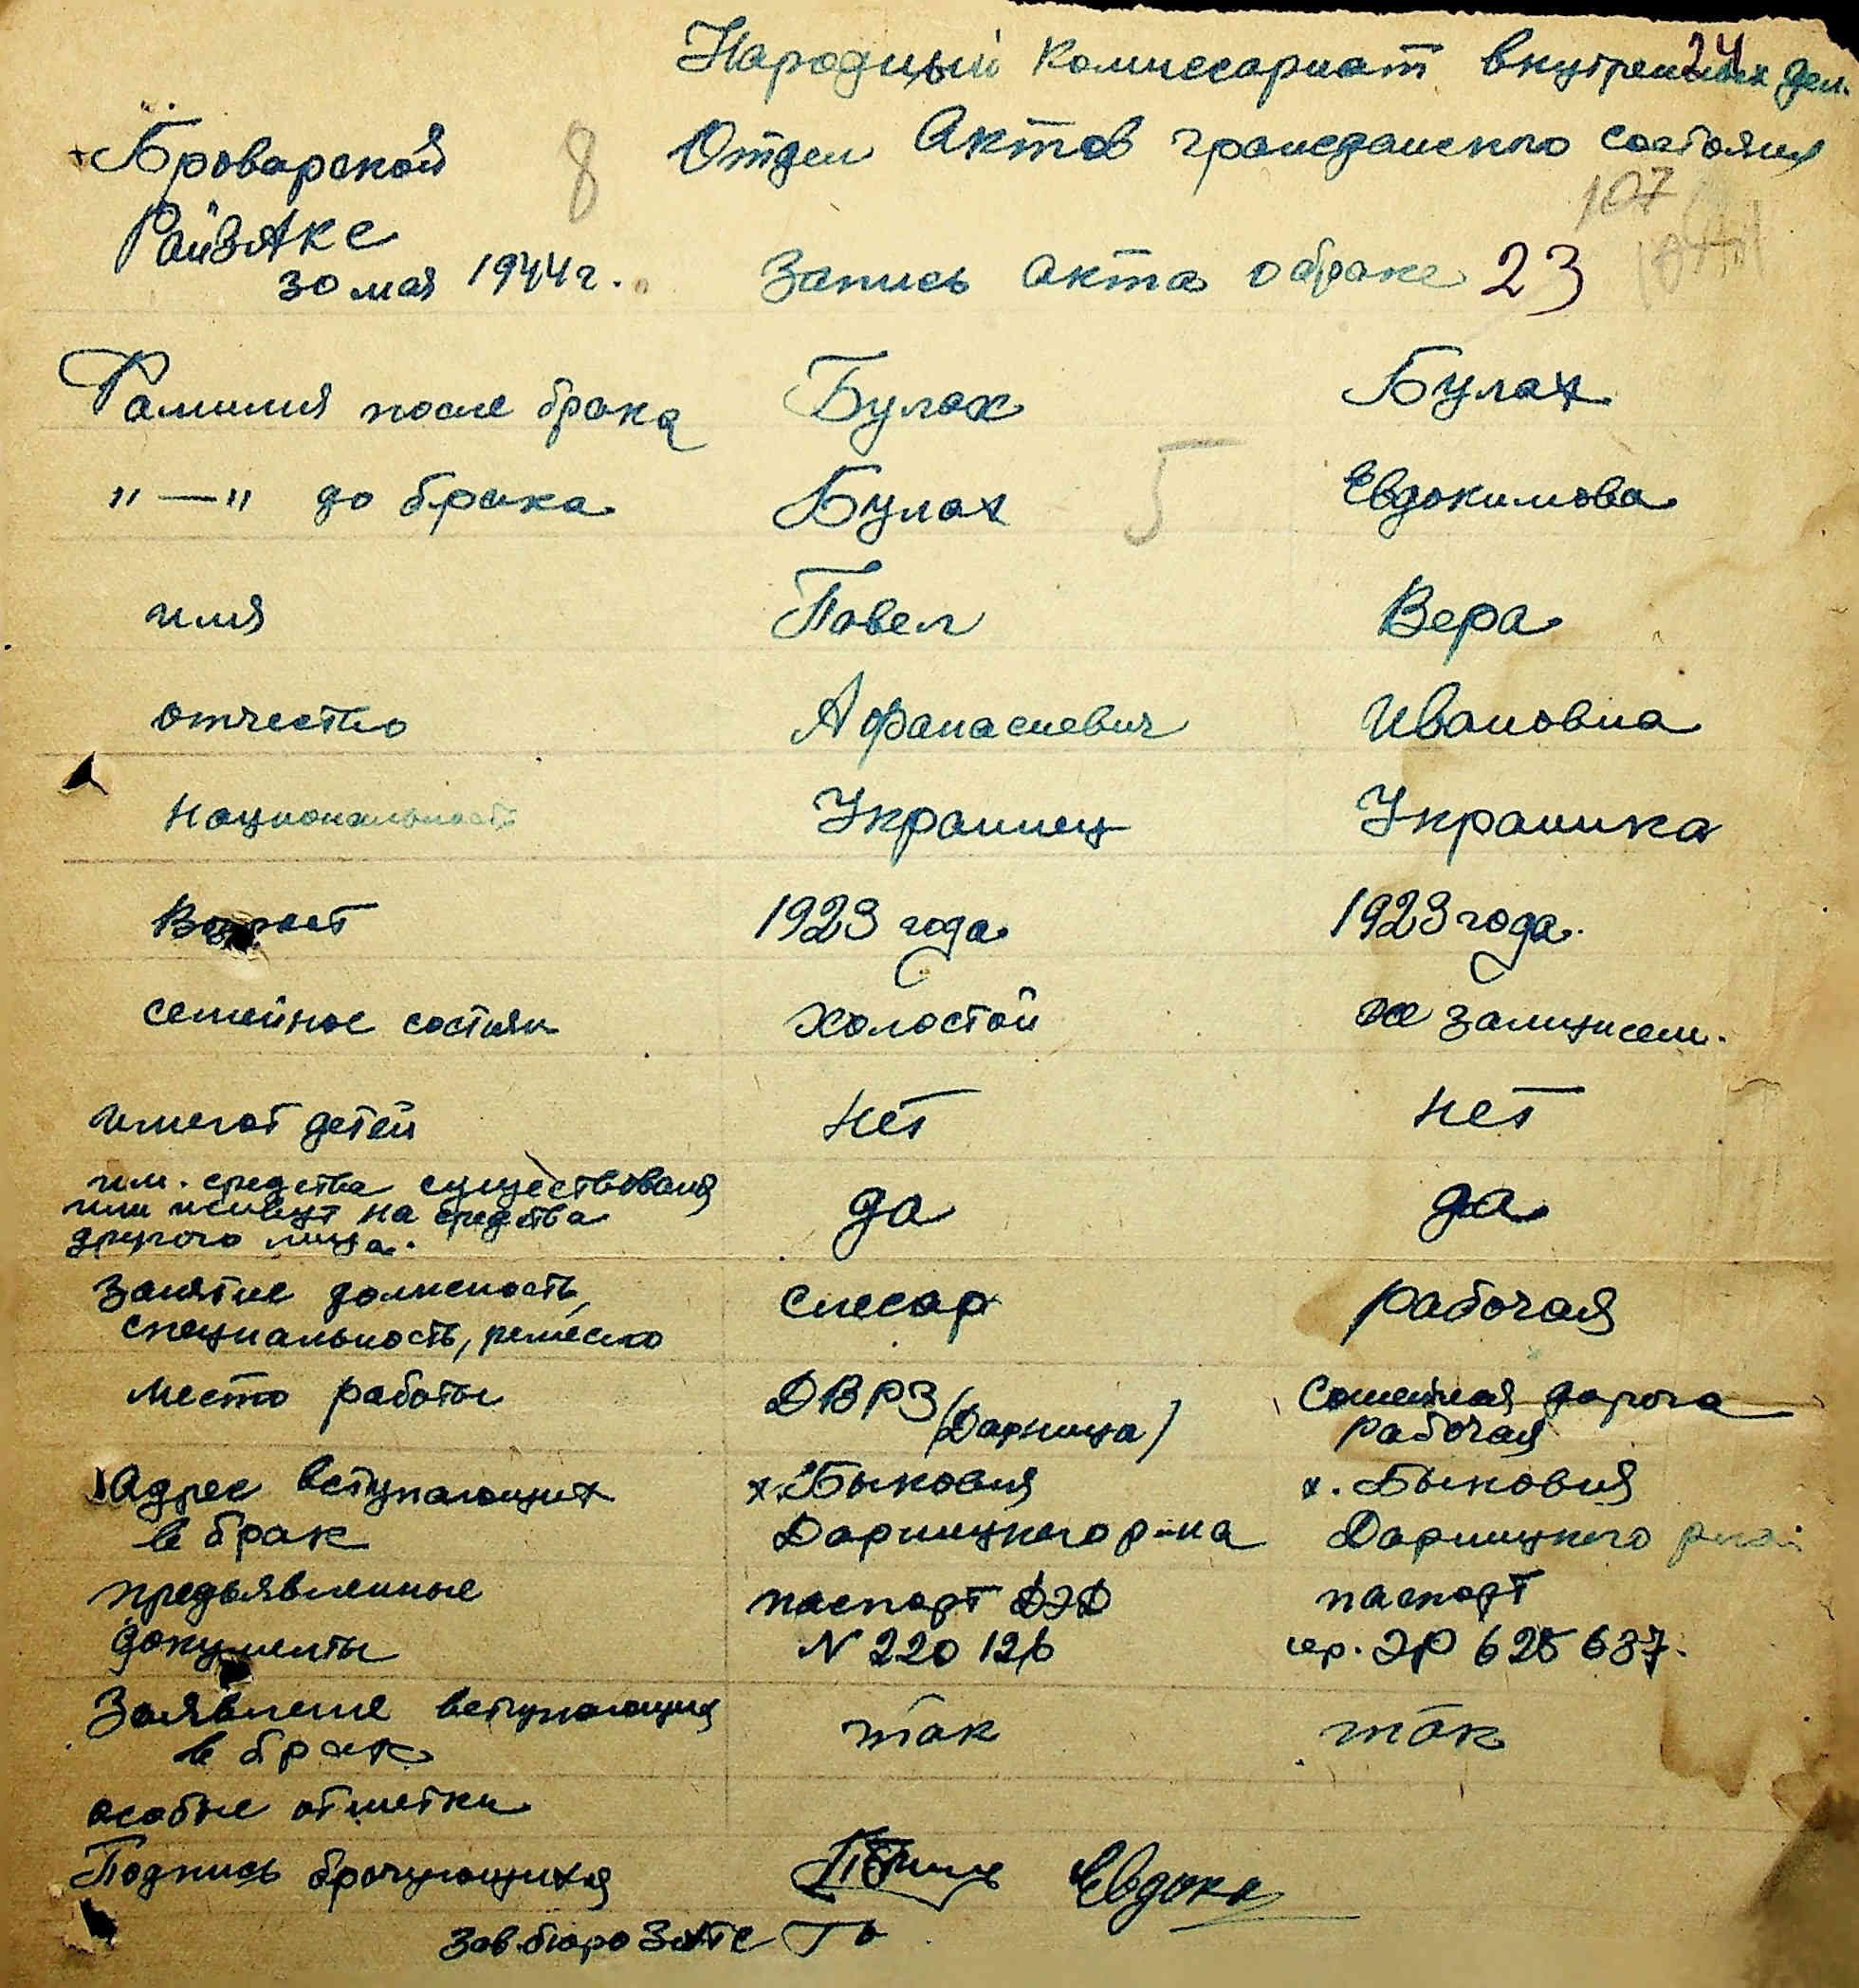 Народный Комиссариат внутренних дел.
24
Отдел Актов гражданского состояния
Броварской
8
РайЗАКС
107
30 мая 1944 г.
Запись акта о браке 23
Фамилия после брака Булах Булах
"—" до брака Булах Евдокимова
5
имя Павел Вера
отчество Афанасиевич Ивановна
Национальность Украинец Украинка
Возраст 1923 года 1923 года.
семейное состоян холостой не замужем.
имеют детей нет нет
им. средства существования
или живут на средства да да
другого лица.
Занятие должность, слесар рабочая
специальность, ремесло
место работы ДВРЗ (Дарница) дорога
рабочая
Адрес вступающих х. Быковня х. Быковня
в брак Дарницкого р-на Дарницкого
предъявленные паспорт паспорт
документы N 220 126 сер. ЭР 625 637.
Заявление вступающих так так
в брак
особые отметки
Подпись брачующихся Евдоки
Зав. бюро ЗАГС